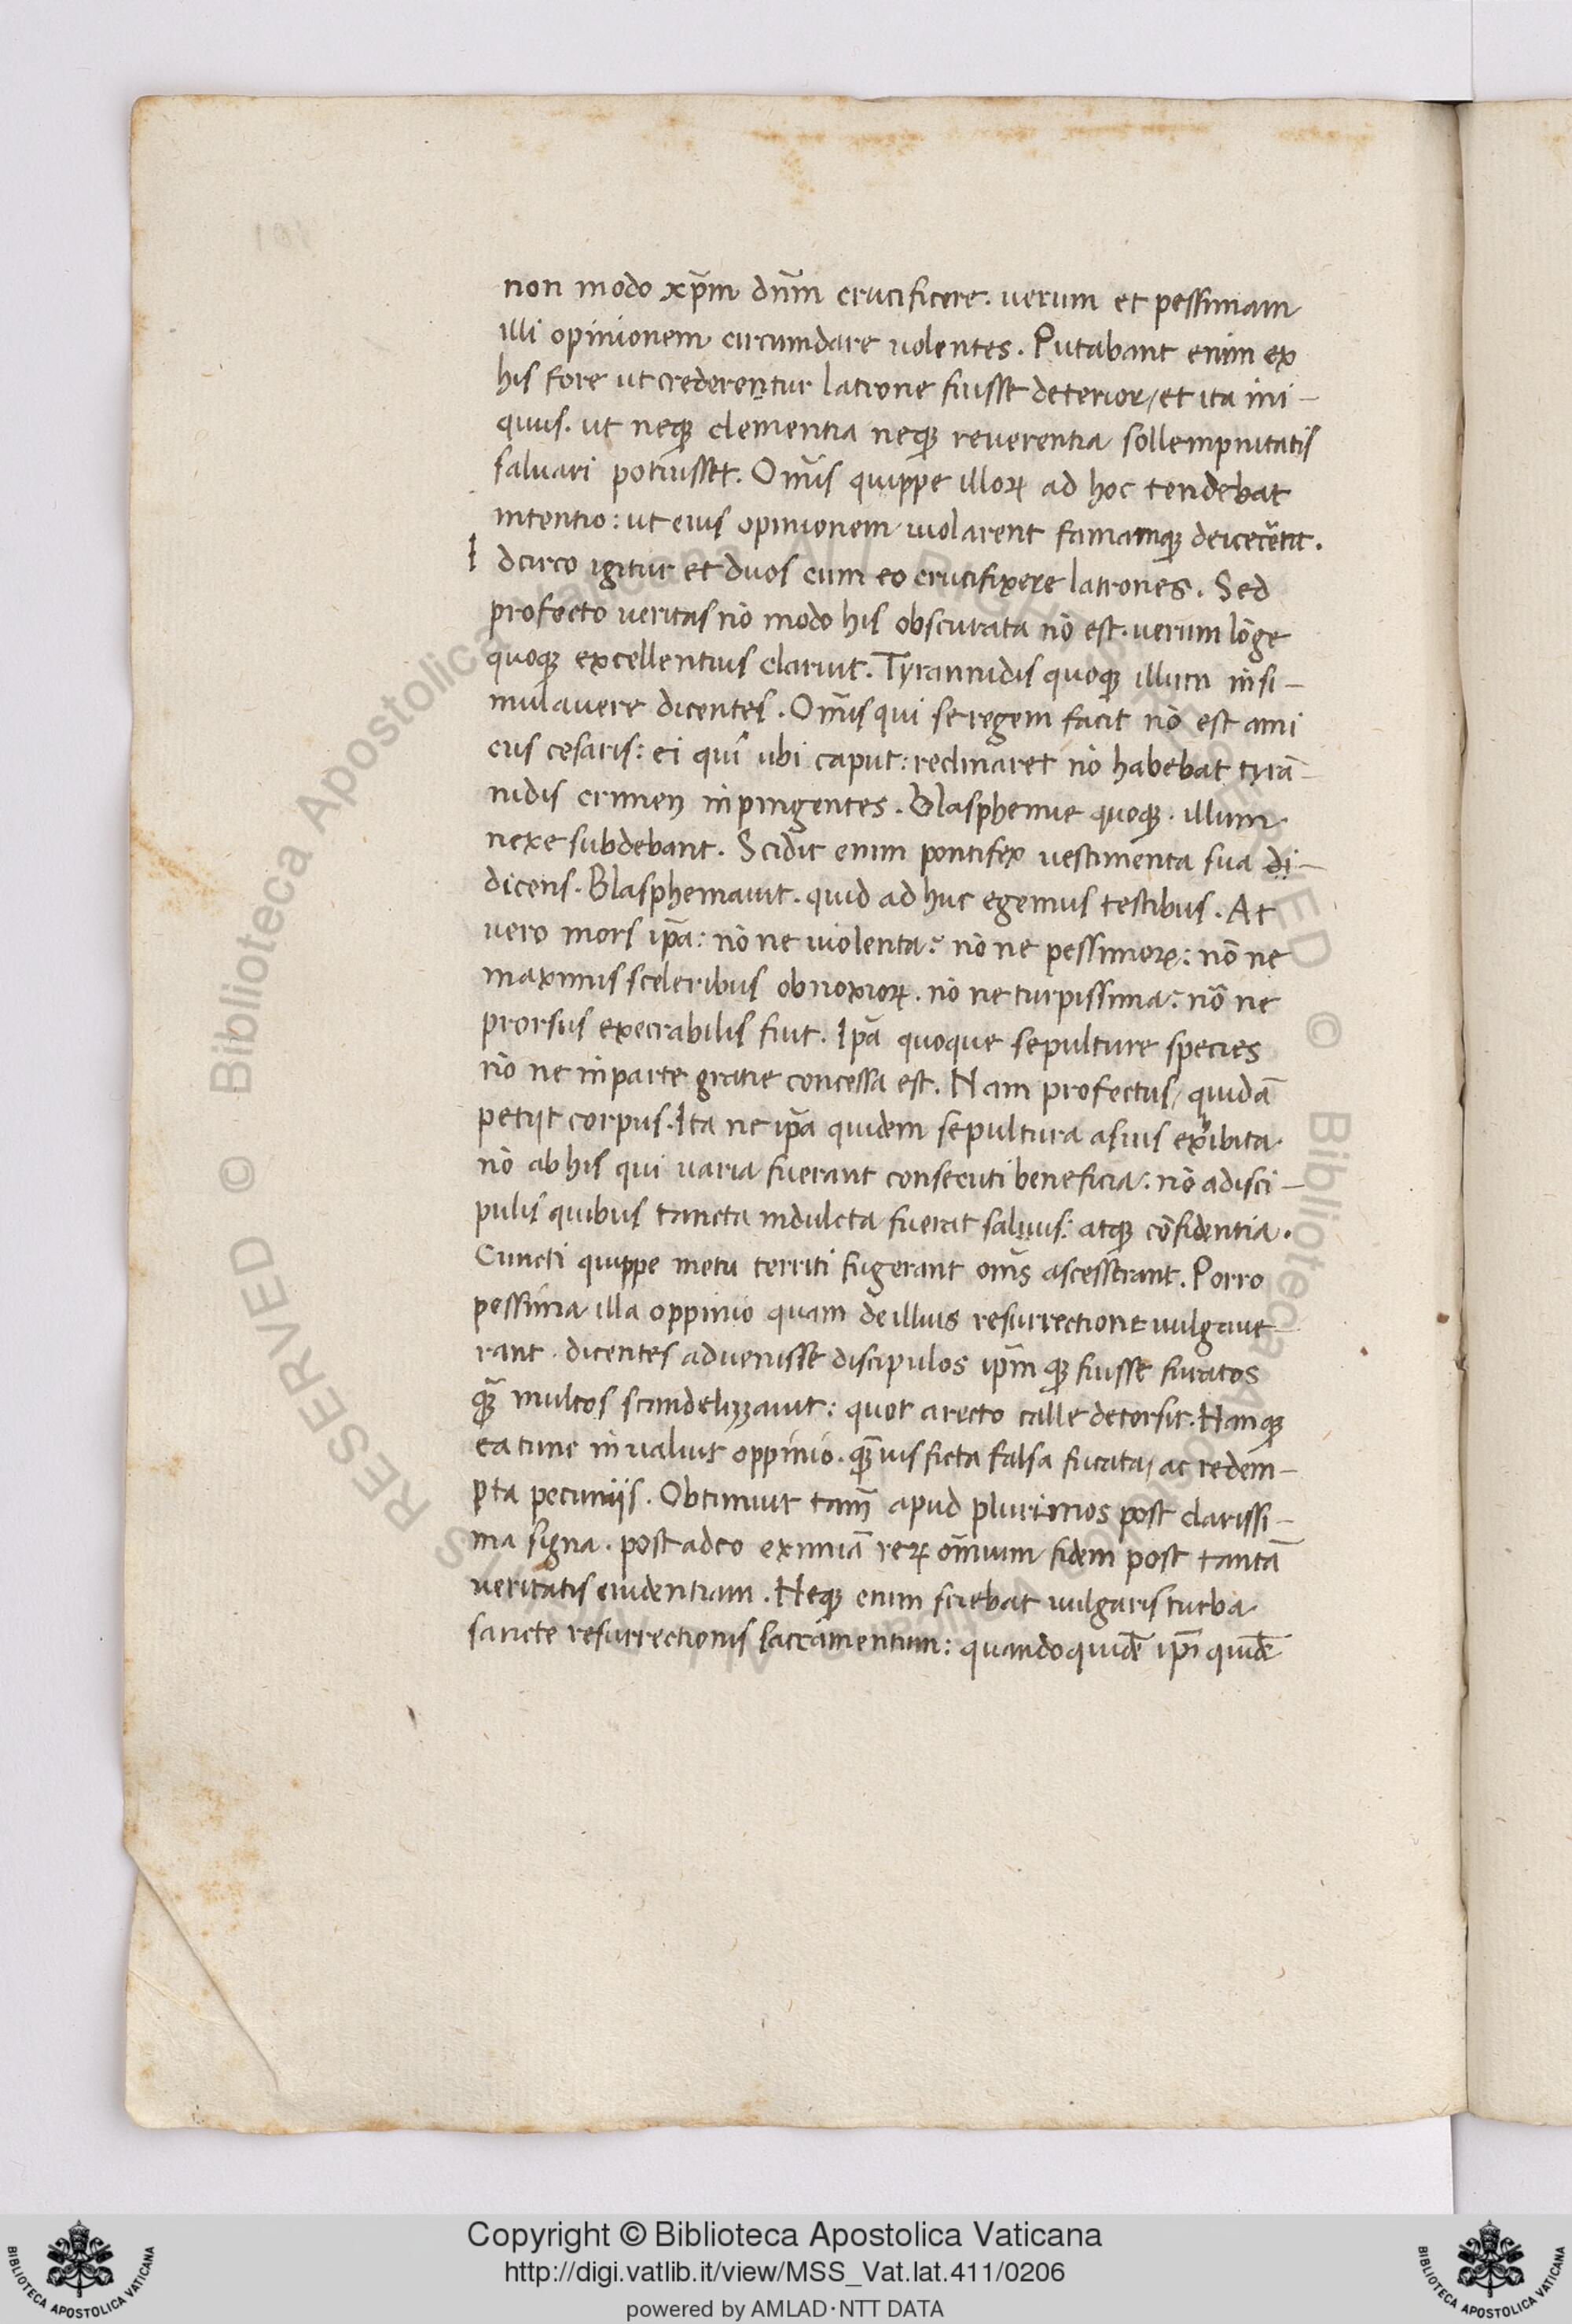 non modo xp̄m dn̄m crucificere. uerum et pessimam
illi opinionem circumdare uolentes. Putabant enim ex
his fore ut crederentur latrone fuisse deterior, et ita ini-
quus. ut neqꝫ clementia neqꝫ reuerentia sollempnitatis
saluari potuisset. Om̄is quippe illoꝝ ad hoc tendebat
intentio: ut eius opinionem uiolarent famamqꝫ deicerēt.
Idcirco igitur et duos cum eo crucifixere latrones. Sed
profecto ueritas nō modo his obscurata nō est. uerum lōge
quoqꝫ excellentius claruit. Tyrannidis quoqꝫ illum insi-
mulauere dicentes. Om̄is qui se regem facit nō est ami
cus cesaris: ei qui ubi caput: reclinaret nō habebat tyrā-
nidis crimen inpingentes. Blasphemie quoqꝫ. illum
nexe subdebant. Scidit enim pontifex uestimenta sua di-
dicens. Blasphemauit. quid ad huc egemus testibus. At
uero mors ip̄a: nō ne uiolenta: nō ne pessimoꝝ: nō ne
maximis sceleribus obnoxioꝝ. nō ne turpissima: nō ne
prorsus execrabilis fuit. Ip̄a quoque sepulture species
nō ne in parte gratie concessa est. Nam profectus, quidā
petijt corpus. Ita ne ip̄a quidem sepultura a suis exhibita
nō ab his qui uaria fuerant consecuti beneficia: nō a disci-
pulis quibus tancta indulcta fuerat saluus: atqꝫ cōfidentia.
Cuncti quippe metu territi fugerant om̄s ascesserant. Porro
pessima illa oppinio quam de illius resurrectione uulgaue-
rant. dicentes aduenisse discipulos ip̄m qꝫ fuisse furatos
qꝫ̄ multos scandelizzauit: quot a recto calle detorsit. Nanqꝫ
ea tunc in ualuit oppinio. qꝫ̄uis ficta falsa fucata, ac redem-
pta pecuniis. Obtinuit tam̄ apud plurimos post clarissi-
ma signa. post adeo eximiā reꝝ om̄ium fidem post tantā
ueritatis euidentiam. Neqꝫ enim sciebat uulgaris turba
sancte resurrectionis sacramentum: quandoquidē ip̄i quidē
Copyright © Biblioteca Apostolica Vaticana
http://digi.vatlib.it/view/MSS_Vat.lat.411/0206
powered by AMLAD·NTT DATA